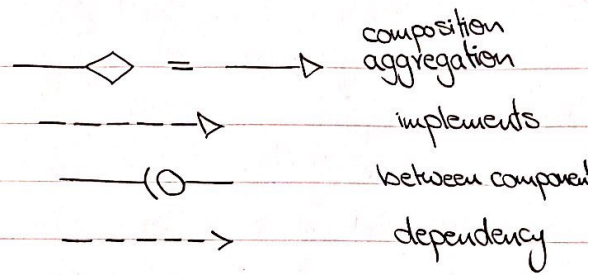 composition
= aggregation
implements
between component
dependency